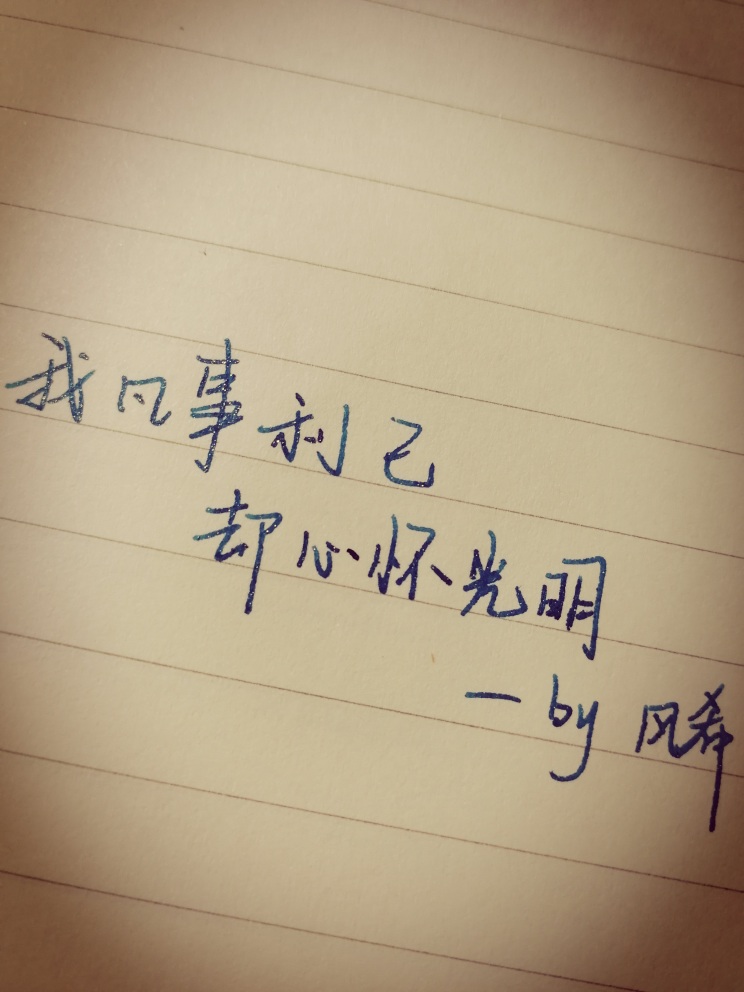 我凡事利己
却心怀光明
— by 风希